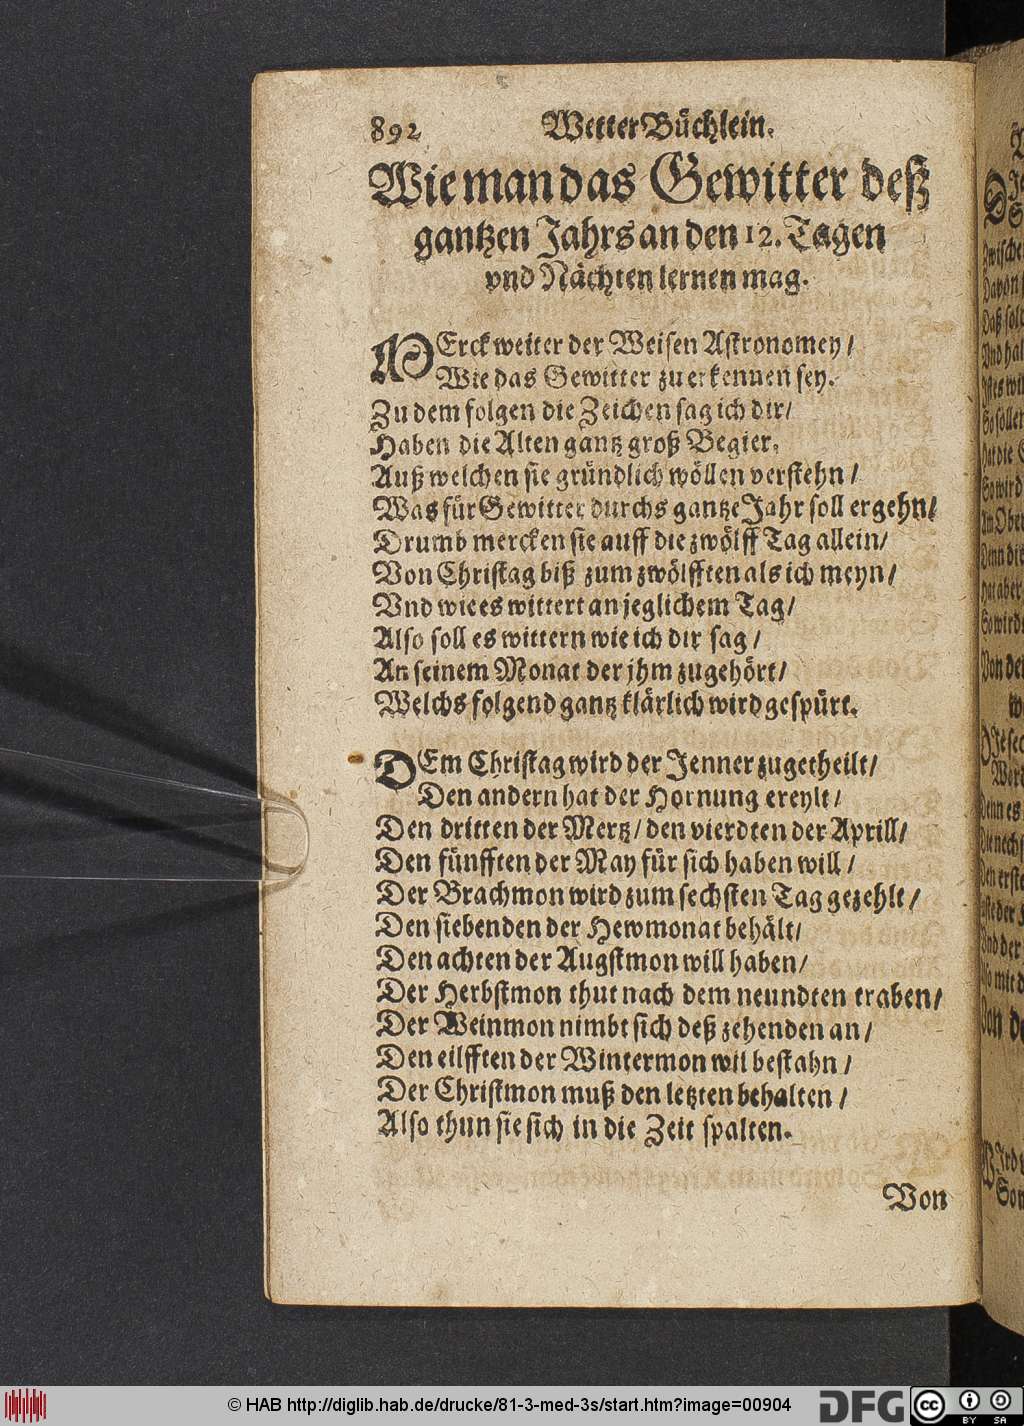 892 Wetter Büchlein.
Wie man das Gewitter deß
gantzen Jahrs an den 12. Tagen
vnd Nächten lernen mag.
MErck weiter der Weisen Astronomey /
Wie das Gewitter zu erkennen sey.
Zu dem folgen die Zeichen sag ich dir /
Haben die Alten gantz groß Begier.
Auß welchen sie gründlich wöllen verstehn /
Was für Gewitter durchs gantze Jahr soll ergehn /
Drumb mercken sie auff die zwölff Tag allein /
Von Christag biß zum zwölfften als ich meyn /
Vnd wie es wittert an jeglichem Tag /
Also soll es wittern wie ich dir sag /
An seinem Monat der jhm zugehört /
Welchs folgend gantz klärlich wird gespürt.
DEm Christag wird der Jenner zugetheilt /
Den andern hat der Hornung ereylt /
Den dritten der Mertz / den vierdten der Aprill /
Den fünfften der May für sich haben will /
Der Brachmon wird zum sechsten Tag gezehlt /
Den siebenden der Hewmonat behält /
Den achten der Augstmon will haben /
Der Herbstmon thut nach dem neundten traben /
Der Weinmon nimbt sich deß zehenden an /
Den eilfften der Wintermon wil bestahn /
Der Christmon muß den letzten behalten /
Also thun sie sich in die Zeit spalten.
Von
© HAB http://diglib.hab.de/drucke/81-3-med-3s/start.htm?image=00904
DFG
cc
BY SA